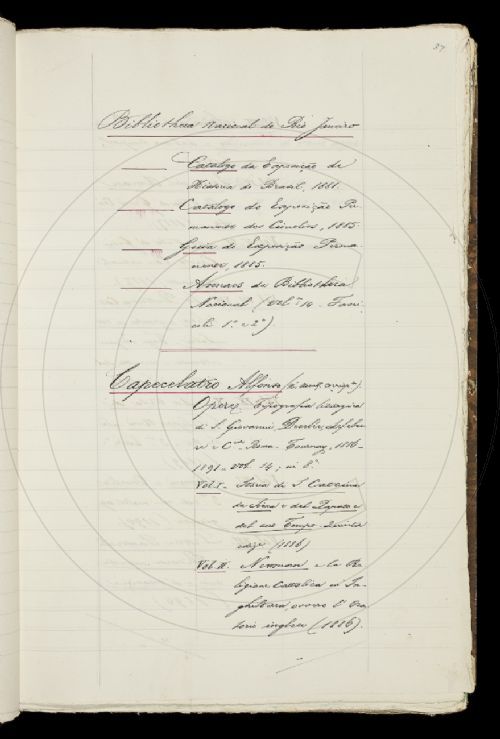 37
Bibliotheca Nacional do Rio Janeiro
Catalogo da Exposição de
Historia do Brasil, 1881.
Catalogo da Exposição Per
manente dos Cimelios, 1885.
Guia da Exposição Perma
nente, 1885.
Annaes da Bibliotheca
Nacional (vol. 14. Fasci
culi 1º e 2º)
Capecelatro Alfonso
Opere, Tipografia Liturgica
di S. Giovanni, Desclée, Lefebv
re e C. Roma - Tournay, 1886-
1891 - vol. 14; in 8º
Vol. I. Storia di S. Caterina
da Siena e del Papato
del suo Tempo. Quinta
ediz. (1886)
Vol. II. Newman e la Re
ligione Cattolica in In-
ghilterra, ovvero l' Ora
torio inglese (1886).